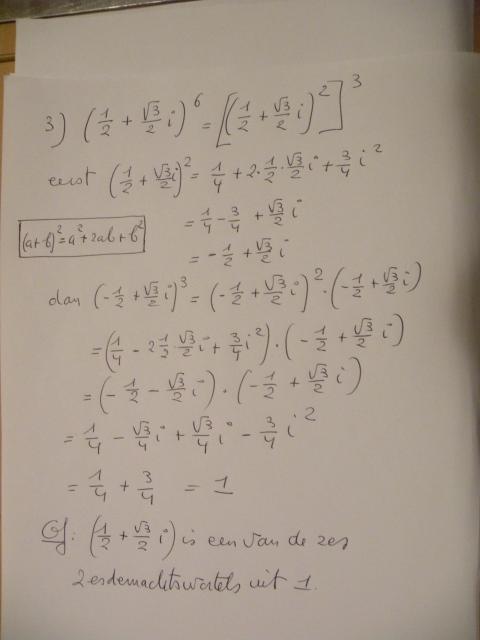 3) (1/2 + √3/2 i)^6 = [(1/2 + √3/2 i)^2]^3
eerst (1/2 + √3/2 i)^2 = 1/4 + 2·1/2·√3/2 i + 3/4 i^2
= 1/4 - 3/4 + √3/2 i
(a+b)^2 = a^2 + 2ab + b^2
= -1/2 + √3/2 i
dan (-1/2 + √3/2 i)^3 = (-1/2 + √3/2 i)^2 · (-1/2 + √3/2 i)
= (1/4 - 2 1/2·√3/2 i + 3/4 i^2) · (-1/2 + √3/2 i)
= (-1/2 - √3/2 i) · (-1/2 + √3/2 i)
= 1/4 - √3/4 i + √3/4 i - 3/4 i^2
= 1/4 + 3/4 = 1
Of: (1/2 + √3/2 i) is een van de zes
zesdemachtswortels uit 1.